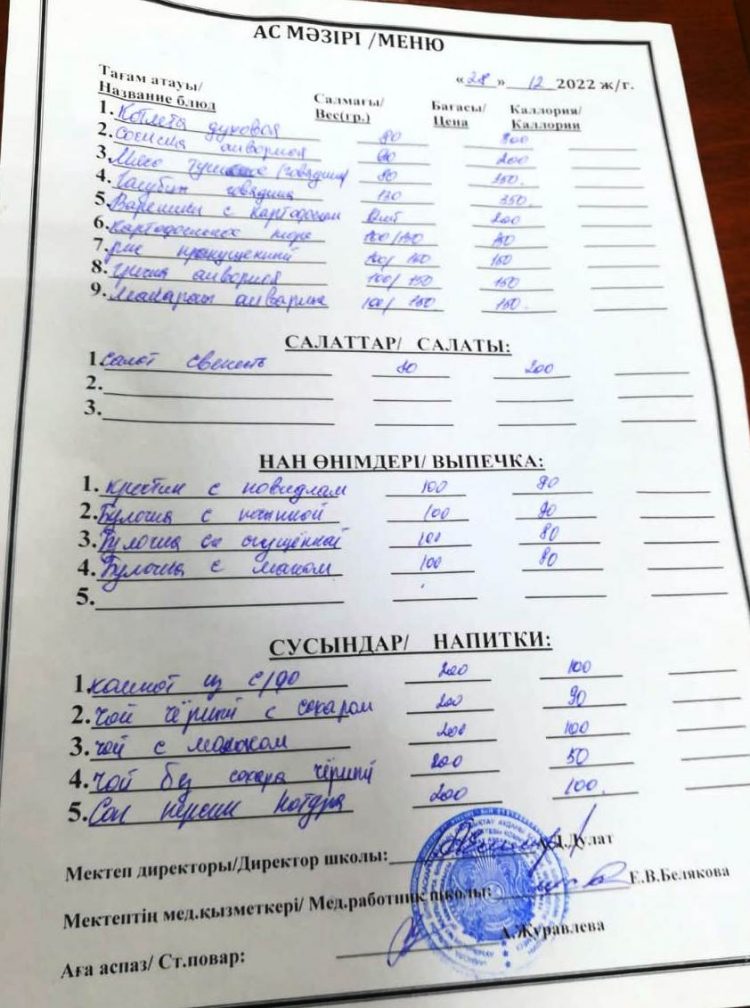 АС МӘЗІРІ /МЕНЮ
«28» 12 2022 ж/г.
Тағам атауы/ Салмағы/ Бағасы/ Каллория/
Название блюд Вес(гр.) Цена Каллории
1. Котлета духовая 80 300
2. Сосиска отварная 60 200
3. Мясо тушеное (говядина) 80 350.
4. Голубцы говядина 130 350.
5. Вареники с картофелем 200
6. Картофельное пюре 100/150 150
7. рис 100/150 150
8. гречка отварная 100/150 150
9. Макароны отварные 100/150 150.
САЛАТТАР/ САЛАТЫ:
1. салат свежесть 80 200
2.
3.
НАН ӨНІМДЕРІ/ ВЫПЕЧКА:
1. с повидлам 100 90
2. Булочка с начинкой 100 90
3. Булочка со сгущённой 100 80
4. Булочка с маком 100 80
5.
СУСЫНДАР/ НАПИТКИ:
1. компот из с/фр 200 100
2. Чай чёрный с сахаром 200 90
3. чай с молоком 200 100
4. Чай без сахара чёрный 200 50
5. Сок персик 200 100.
Мектеп директоры/Директор школы: А.Д.Дулат
Мектептің мед.қызметкері/ Мед.работник школы: Е.В.Белякова
Аға аспаз/ Ст.повар: А.Журавлева